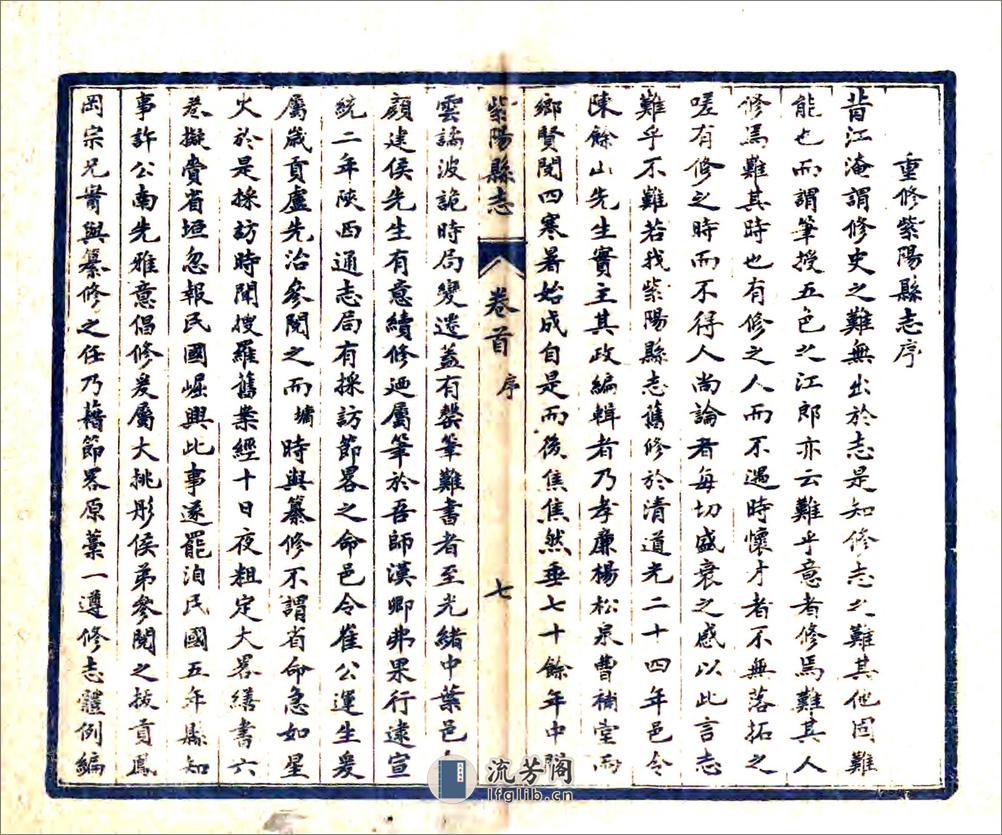 重修紫陽縣志序
昔江淹謂修史之難無出於志是知修志之難其他固難
能也而謂筆授五色之江郎亦云難乎意者修焉難其人
修焉難其時也有修之人而不遇時懷才者不無落拓之
嗟有修之時而不得人尚論者每切盛衰之感以此言志
難乎不難若我紫陽縣志舊修於清道光二十四年邑令
陳餘山先生實主其政編輯者乃孝廉楊松泉曹補堂兩
鄉賢閱四寒暑始成自是而後焦焦然垂七十餘年中間
紫陽縣志 卷首 序 七
雲譎波詭時局變遷蓋有罄筆難書者至光緒中葉邑
顏建侯先生有意續修迺屬筆於吾師漢卿弗果行逮宣
統二年陝西通志局有採訪節畧之命邑令崔公運生爰
屬歲貢盧先治參閱之而墉時與纂修不謂省命急如星
火於是採訪時聞搜羅舊案經十日夜粗定大畧繕書六
卷擬賫省垣忽報民國崛興此事遂罷洎民國五年縣知
事許公南先雅意倡修爰屬大挑彤侯弟參閱之拔貢鳳
岡宗兄甯與纂修之任乃藉節畧原藁一遵修志體例編
流芳閣
lfglib.cn